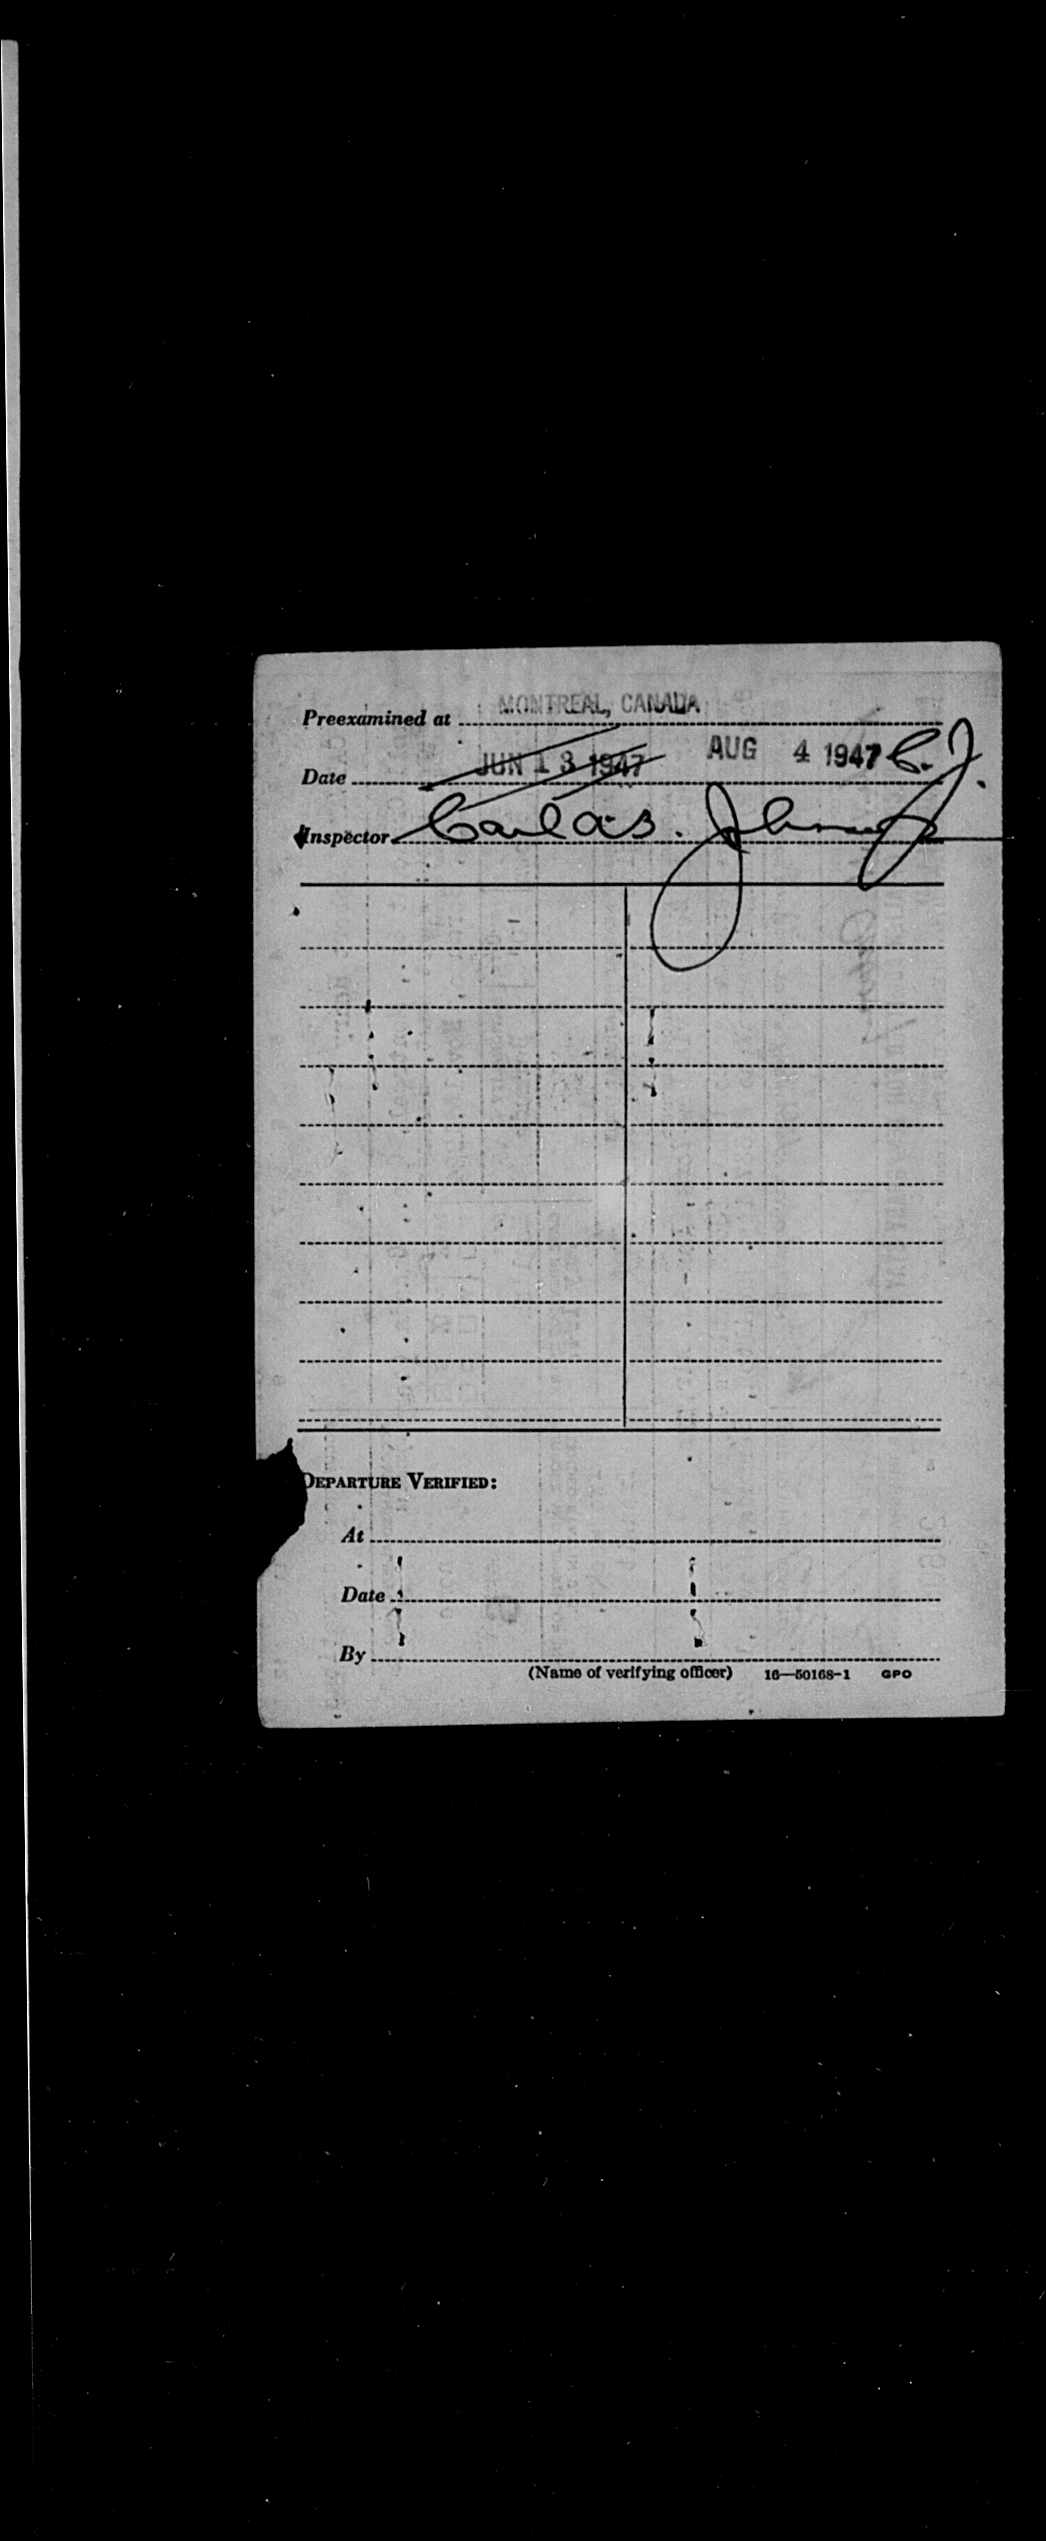 Preexamined at MONTREAL, CANADA
Date JUN 13 1947 AUG 4 1947 C. J.
Inspector
DEPARTURE VERIFIED:
At
Date
By
(Name of verifying officer) 16—50168-1 GPO